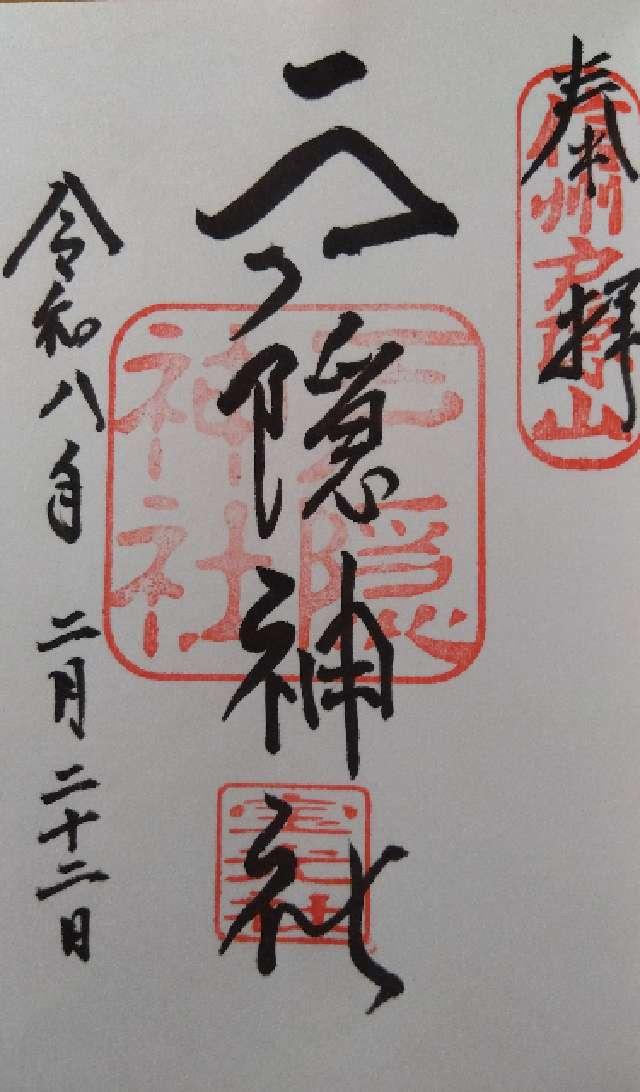 奉拝
信州戸隠山
戸隠神社
戸隠
神社
宝光社
令和八年 二月 二十二日